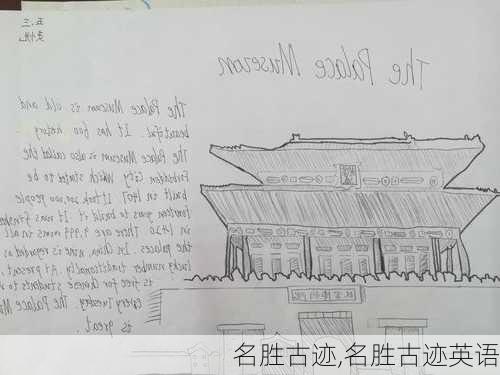 五.三
The Palace Museum
The Palace Museum is old and
beautiful. It has 600 history
The Palace Museum is also called the
Forbidden City Which started to be
built in 1407. It took 100,000 people
fourteen years to build it. It was finished
in 1420. There are 9,999 rooms in all
the palaces. In China, nine is regarded as
lucky number traditionally. At present,
is free for Chinese students to
every Tuesday. The Palace
is great.
故宫博物院
名胜古迹,名胜古迹英语